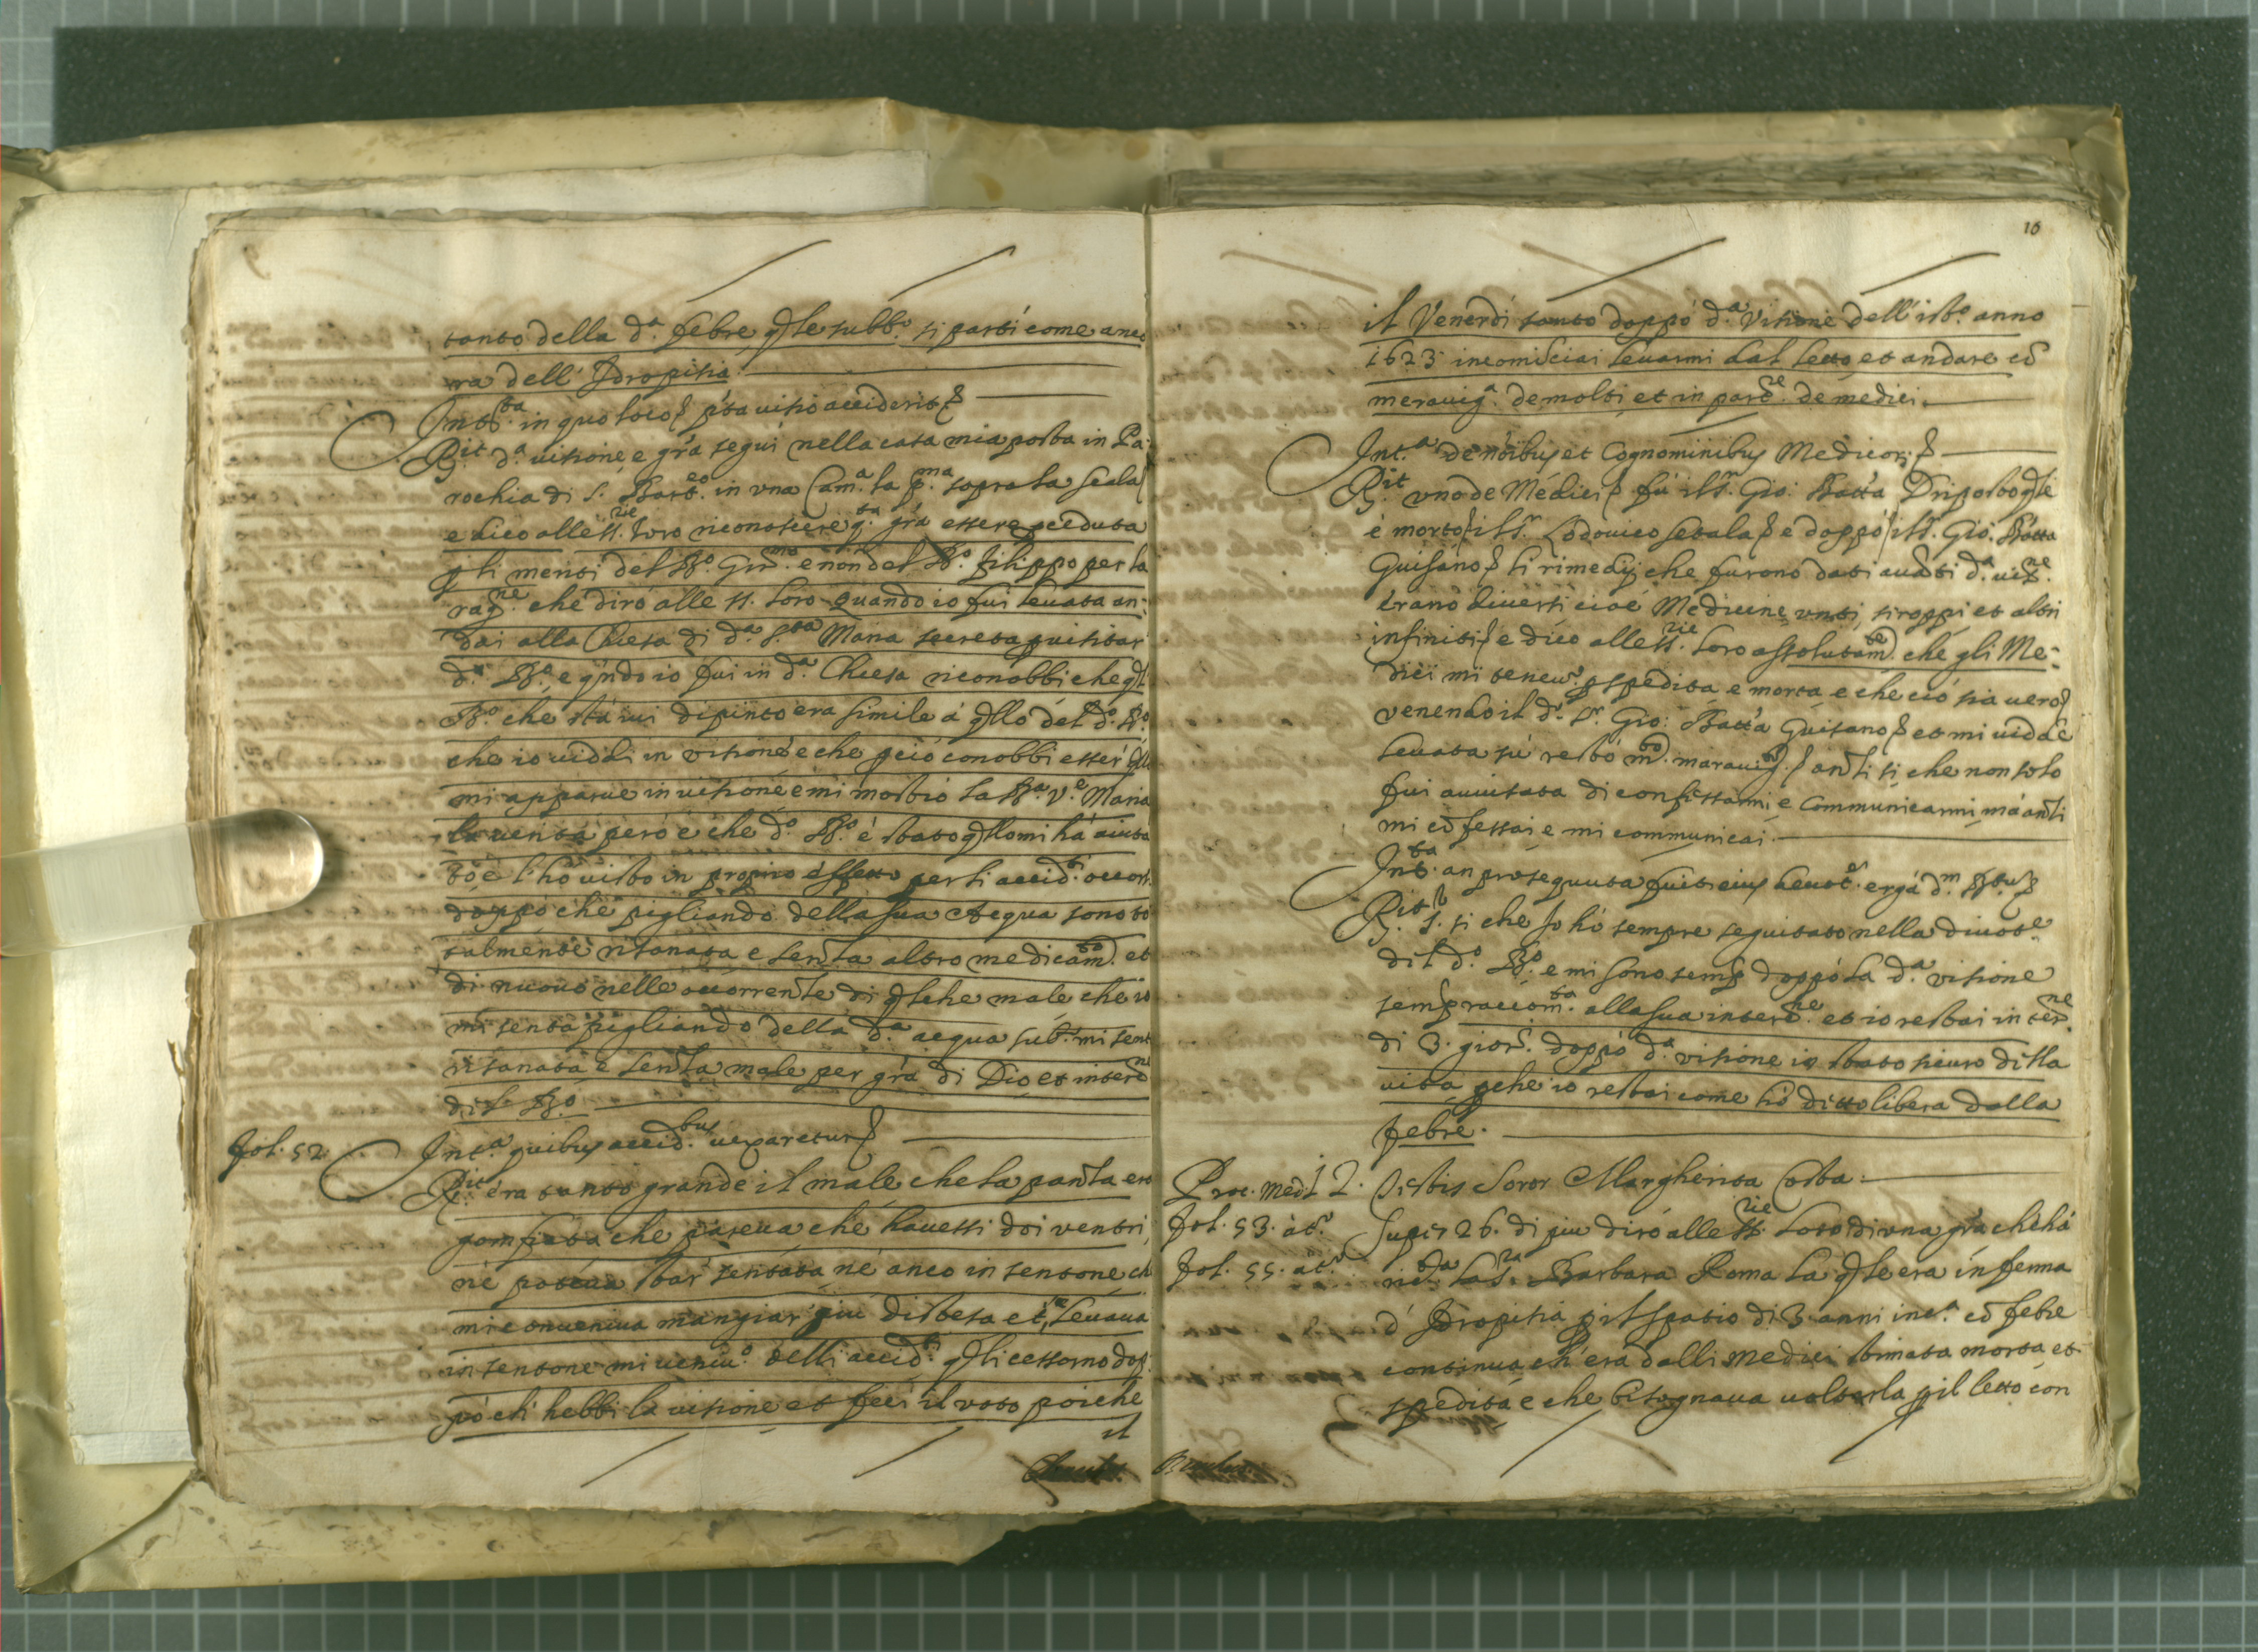 tanto della d.ª febre q̃le subb.º si partì come anco
ra dell' Idropisia
Int.ta in quo loco p̃ta visio acciderit
R.it d.ª visione e gr̃a seguì nella casa mia posta in Pa:
rochia di S. Bart.eo in una Cam.ª la p.ma sopra la scala
e dico alle SS.rie loro riconoscere q.ta gr̃a essere
p̃ li meriti del B.º Gir.mo e non del B.º Filippo per la
rag.ne che dirò alle SS. loro quando io fui levata an:
dai alla Chiesa di d.ª S.ta Maria secreta p̃ visitar
d.º B.º, e qũdo io fui in d.ª Chiesa riconobbi che q̃l
B.º che stà ivi depinto era simile à q̃llo del d.º B.º
che io viddi in visione e che p̃ ciò conobbi esser q̃llo
mi apparve in visione e mi mostrò la B.ª V.e Maria
la verità però è che d.º B.º è stato q̃llo mi hà aiuta
to e l'hò visto in proprio effetto per li accid.ti occorsi
doppo che pigliando della sua Acqua sono to
talmente risanata e senza altro medicam.to et
di nuovo nelle occorrenze di q̃lche male che io
mi senta pigliando della d.ª acqua sub.º mi sento
risanata e senza male per gr̃a di Dio et interc.ne
dil B.º
Fol. 52
Int.ª quibus accid.bus vexaretur
R.it era tanto grande il male che la panza ero
gomfiata che pareva che havessi doi ventri,
nè poteva star sentata nè anco in sentone ch
mi conveniva mangiar più distesa et, levava
in sentone mi veniv.º delli accid.ti q̃li cessorno dop:
pò ch' hebbi la visione et feci il voto poiche
il
10
il Venerdì santo doppò d.ª visione dell' ist.º anno
1623 incomisciai levarmi dal letto et andare cõ
meravig.ª de molti et in part.e de medici.
Int.ª de nõibus et Cognominibus Medicor.
R.it uno de Medici fù il S.r Gio: Batt'a q̃le
è morto il S.r Lodovico Setala e doppò il S.r Gio: Batta
Guisano li rimedij che furono dati avãti d.ª vis.ne
erano diversi cioè Medicine unti, siroppi et altri
infiniti e dico alle SS.rie loro assolutam.te che gli Me:
dici mi tenev.º p̃ spedita e morta e che ciò sia vero
venendo il d.º S.r Gio: Batt'a Guisano et mi vidde
levata sù restò m.to maravig.to anzi si che non solo
fui avvisata di confessarmi e Communicarmi mà anzi
mi cõfessai e mi communicai.
Int.ta an prosequuta fuit eius devot.e ergà d.m B.tum
R.it S. si che Io hò sempre seguitato nella divot.e
dil d.º B.º e mi sono semp̃ doppò la d.ª visione
semp̃ raccom.ta alla sua interc.ne et io restai in ter.ne
di 3. gior.i doppò d.ª visione in stato sicuro della
vita p̃che io restai come hò ditto libera dalla
febre.
Proc. Med.l 2. Testis Soror Margherita Costa.
Fol. 53. àt.º
Super 26. di più dirò alle SS.rie loro di una gr̃a che hà
Fol. 55. àt.º
ric.ta la S.ra Barbara Roma la q̃le era inferma
d' Idropisia p̃ il spatio di 3 anni inc.ª cõ febre
continua ch' era dalli medici stimata morta et
spedita e che bisognava voltarla p̃ il letto con